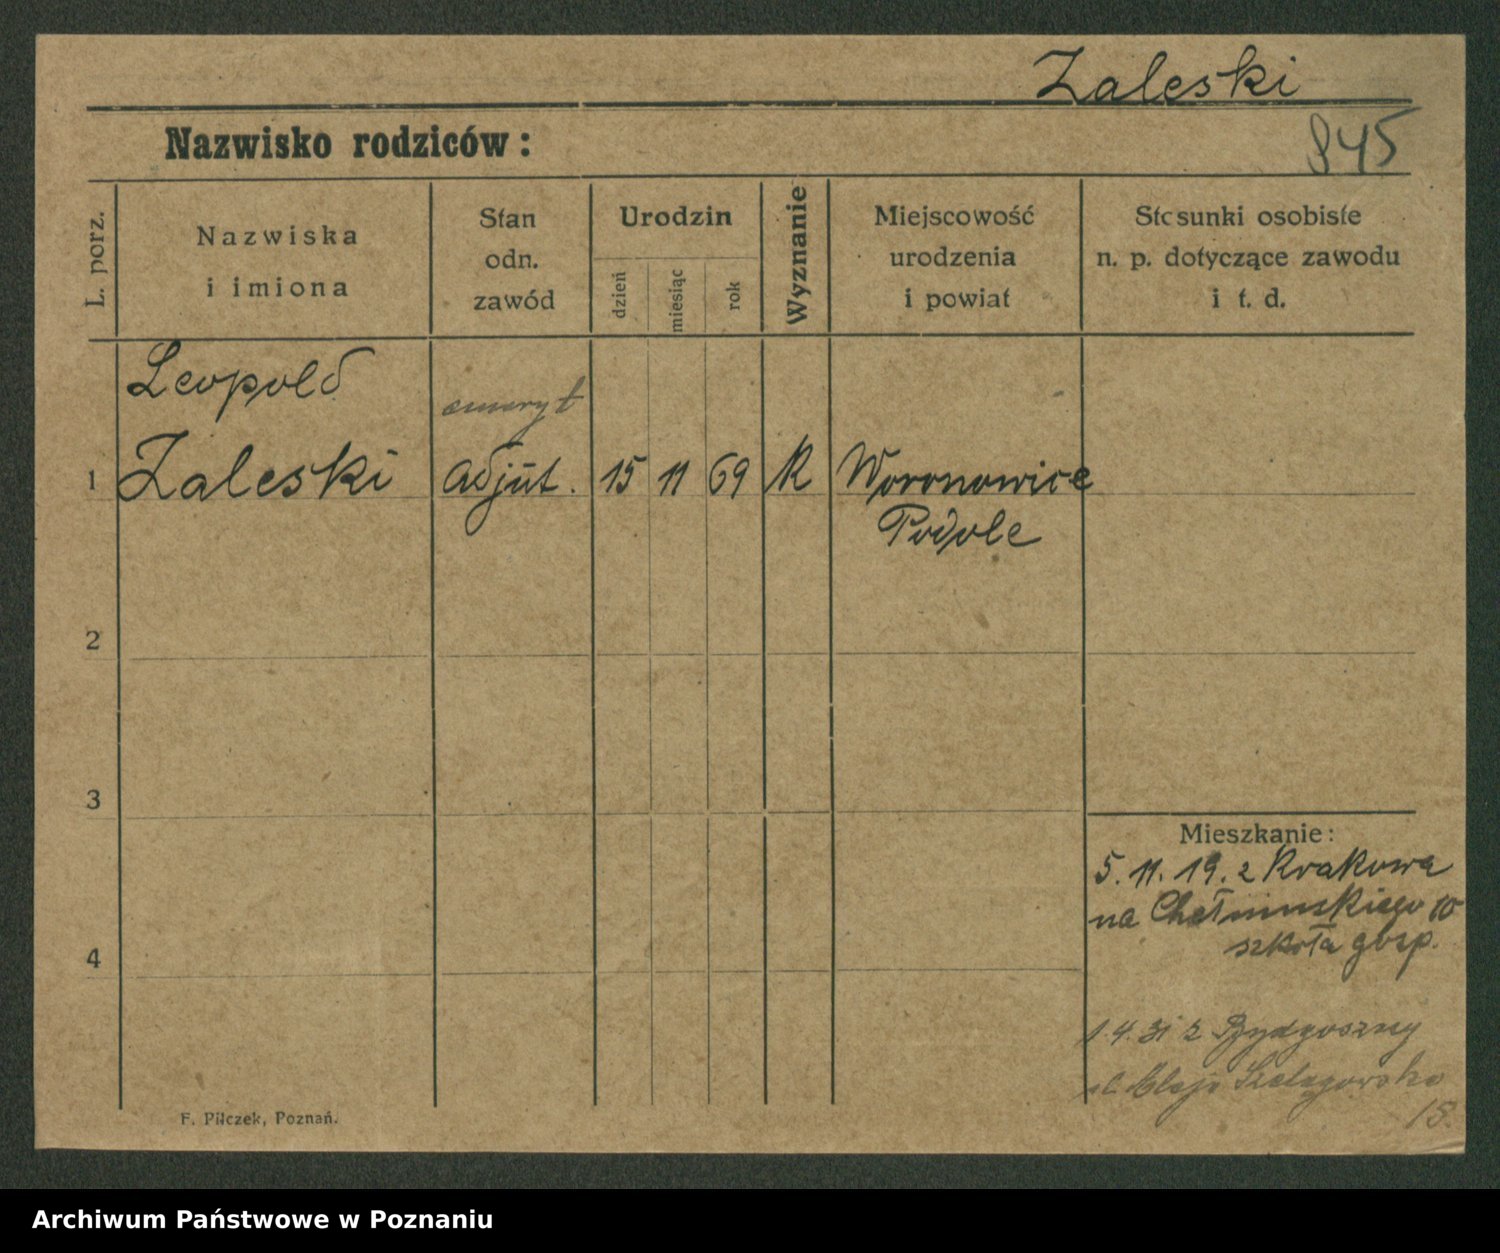 Zaleski
Nazwisko rodziców:
845
L. porz.
Nazwiska
i imiona
Stan
odn.
zawód
Urodzin
dzień
miesiąc
rok
Wyznanie
Miejscowość
urodzenia
i powiat
Stosunki osobiste
n. p. dotyczące zawodu
i t. d.
Leopold
emeryt
1 Zaleski adjut. 15 11 69 K Woronowice
Podole
2
3
Mieszkanie:
5. 11. 19. z Krakowa
na Chełmińskiego 10
szkoła gosp.
4
1.4.31 z Bydgoszczy
Szelągowska
18.
F. Pilczek, Poznań.
Archiwum Państwowe w Poznaniu